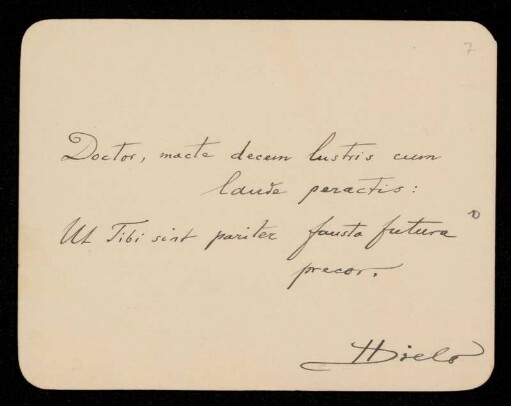 7
Doctor, macte decem lustris cum
laude peractis:
Ut Tibi sint pariter fausta futura
precor.